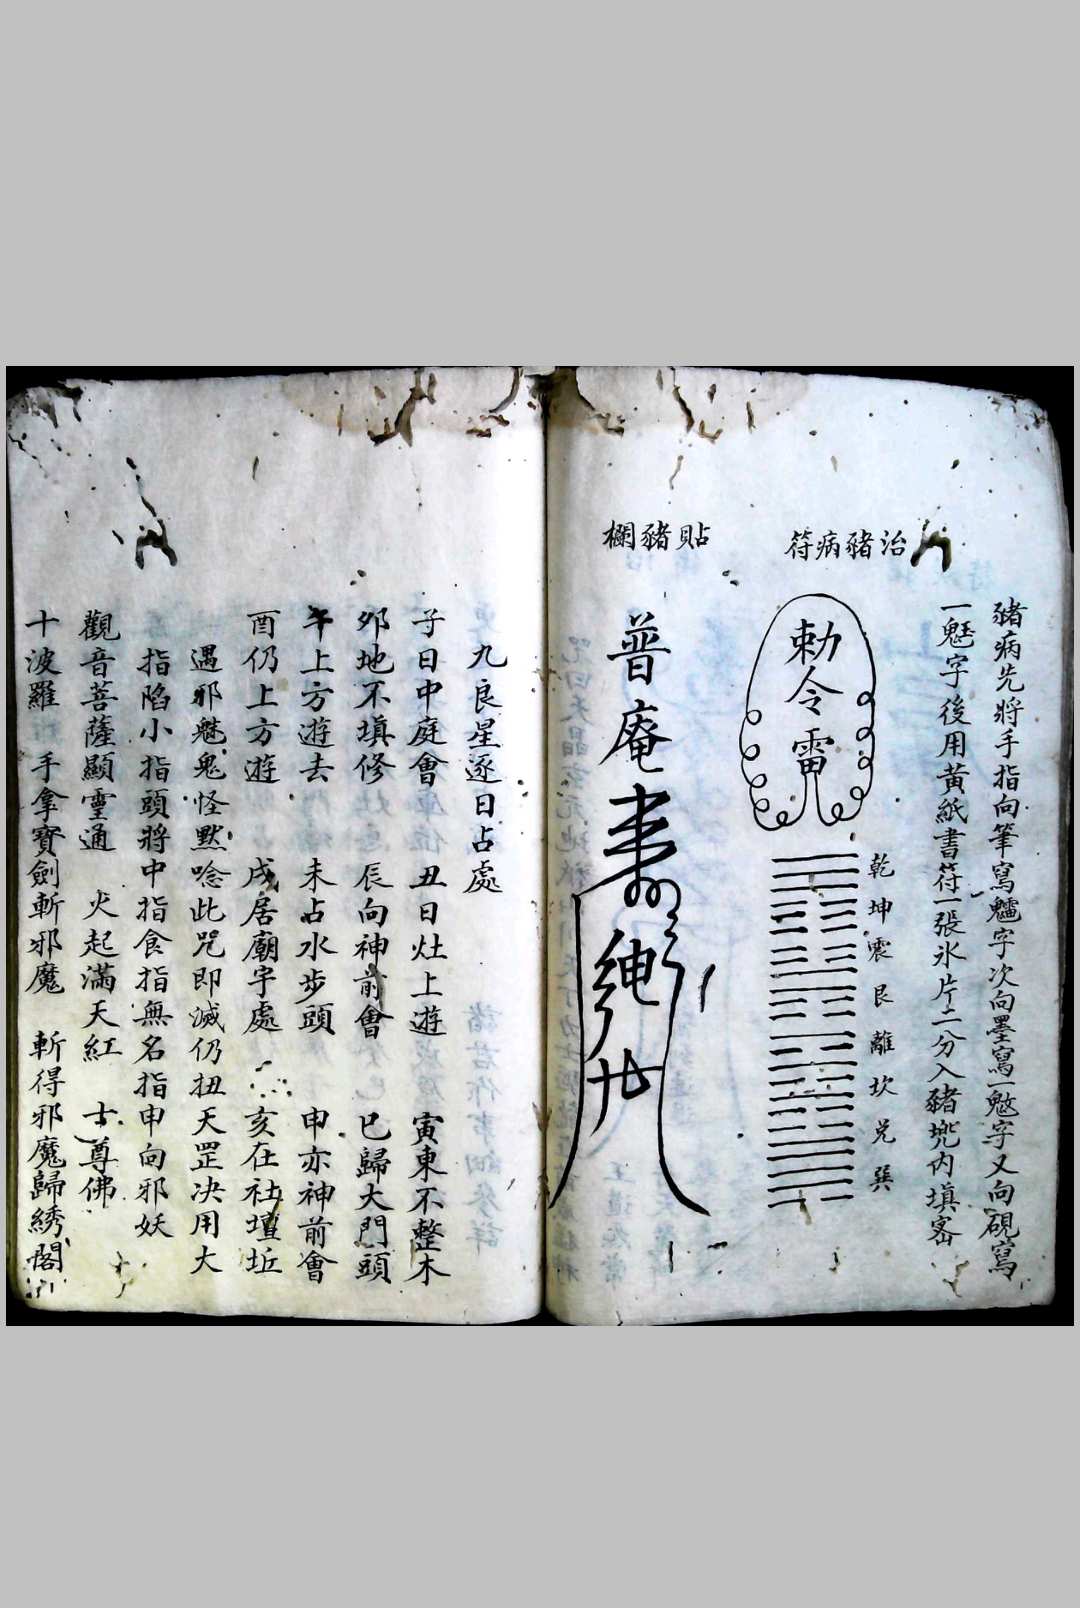 豬病先將手指向筆寫魖字次向墨寫一魃字又向硯寫
一魅字後用黃紙書符一張氷片二分入豬兠内填宻
治豬病符
勅令雷
乾坤震艮離坎兑巽
貼豬欄
普庵
九良星逐日占處
子日中庭會 丑日灶上遊 寅東不整木
夘地不填修 辰向神前會 巳歸大門頭
午上方遊去 未占水步頭 申亦神前會
酉仍上方遊 戍居廟宇處 亥在社壇坵
遇邪魅鬼怪默唸此咒即滅仍扭天罡决用大
指陷小指頭將中指食指無名指申向邪妖
觀音菩薩顯靈通 火起滿天紅 士尊佛
十波羅 手拿寳劍斬邪魔 斬得邪魔歸綉閣